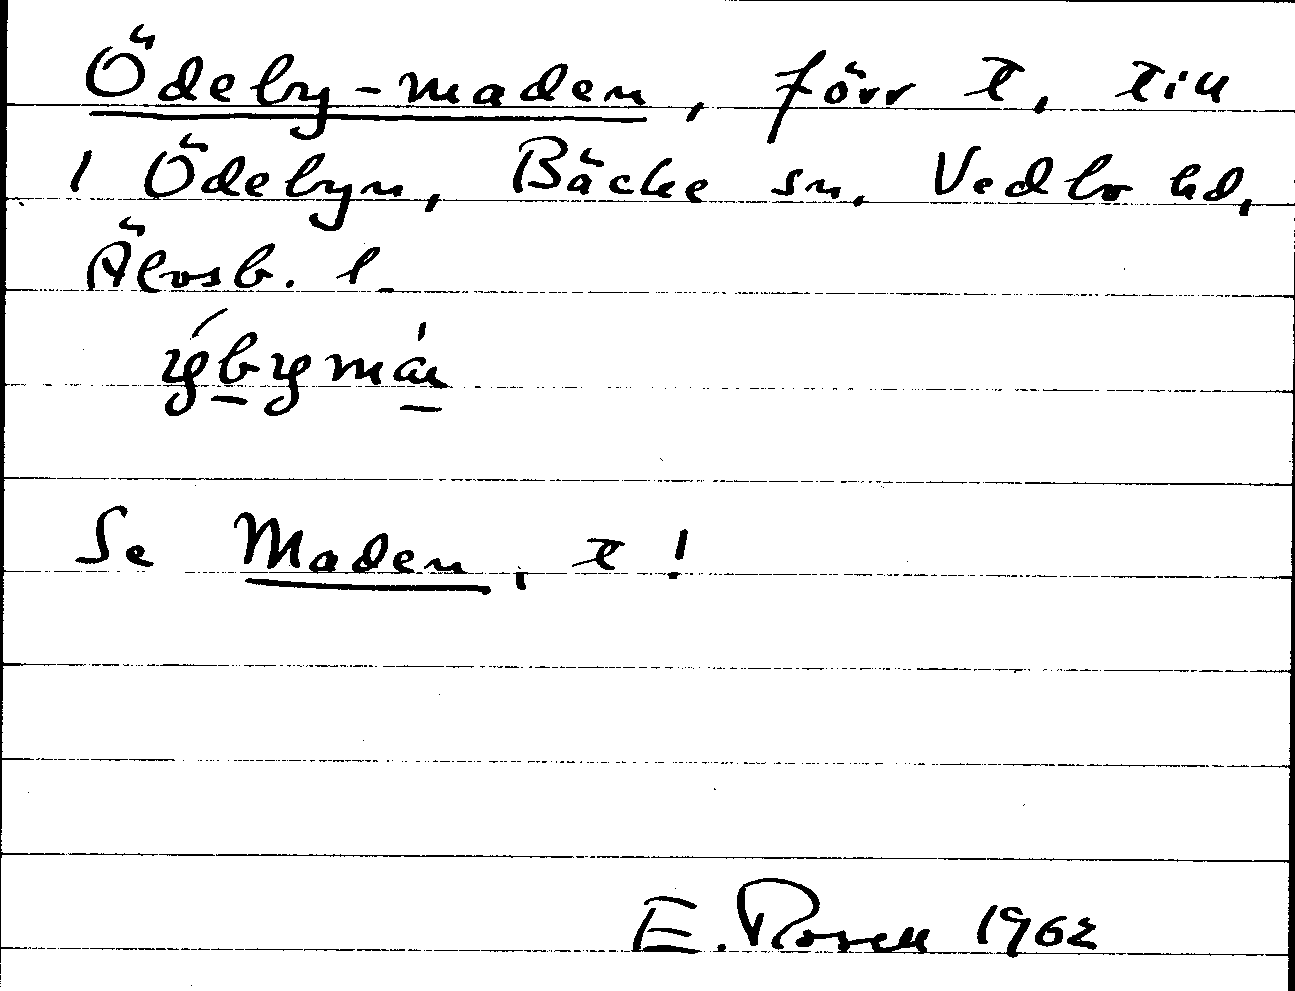 Ödeby-maden, förr t, till
1 Ödebyn, Bäcke sn, Vedbo hd,
Älvsb. l.
Se Maden, t!
E. Rosell 1962